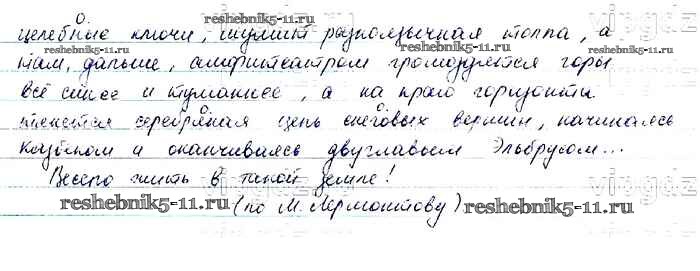 целебные ключи, шумит разноязычная толпа, а
там, дальше, амфитеатром громоздятся горы
всё синее и туманнее, а на краю горизонта
тянется серебряная цепь снеговых вершин, начинаясь
Казбеком и оканчиваясь двуглавым Эльбрусом...
Весело жить в такой земле!
(по М. Лермонтову)
reshebnik5-11.ru
reshebnik5-11.ru
reshebnik5-11.ru
reshebnik5-11.ru
reshebnik5-11.ru
reshebnik5-11.ru
vipgdz
vipgdz